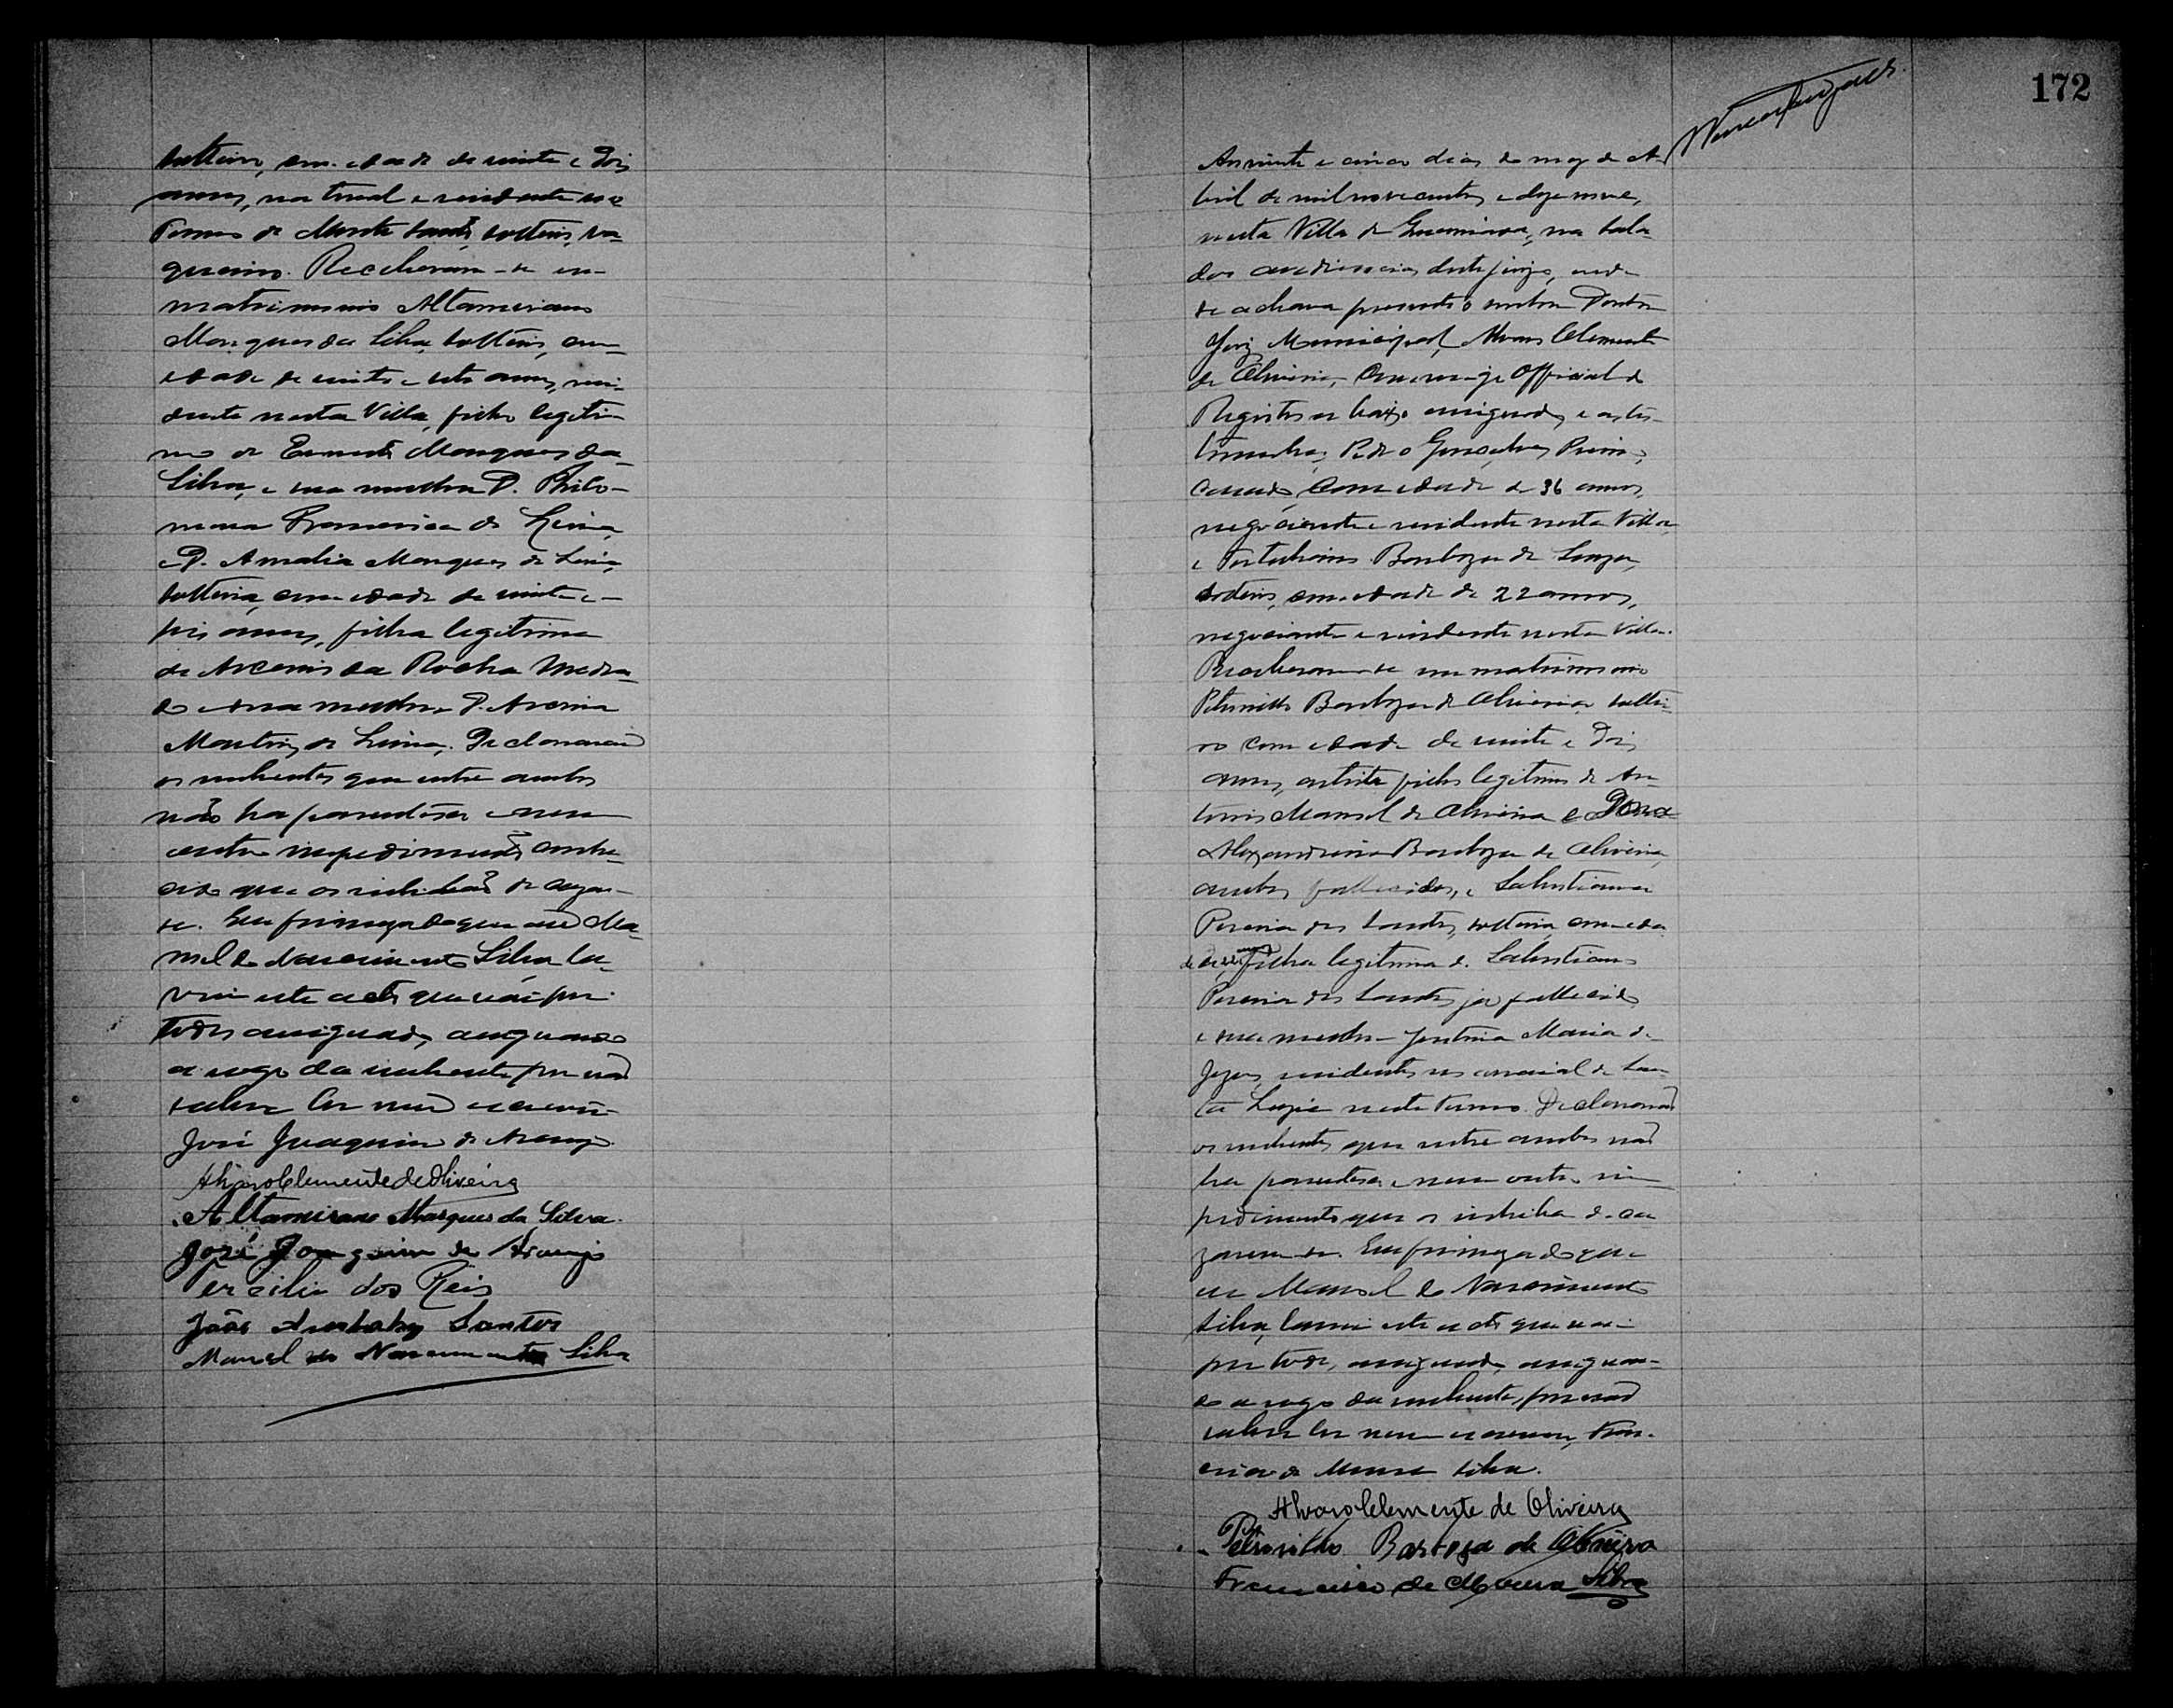 solteiro, com edade de vinte e dois
annos, natural e residente no
Termo de Monte Santo, solteiro, va-
queiro. Receberam-se em
matrimonio Altamirano
Marques da Silva, solteiro, com
edade de vinte e sete annos, resi-
dente nesta Villa, filho legiti-
mo de Ernesto Marques da
Silva, e sua mulher D. Philo-
mena Francisca de Lima,
e D. Amalia Marques de Lima,
solteira, com edade de vinte e
seis annos, filha legitima
de Arcenio da Rocha Medra-
do e sua mulher D. Arcenia
Martins de Lima. Declararaõ
os nubentes que entre ambos
naõ ha parentesco e nem
outro impedimento conhe-
cido que os inhibaõ de cazar-
se. Em firmeza do que eu Ma-
noel do Nascimento Silva la-
vrei este acto que vai por
todos assignado, assignando
a rogo da nubente por naõ
saber ler nem escrever
José Joaquim de Araujo.
Alvaro Clemente de Oliveira
Altamirano Marques da Silva.
José Joaquim de Araujo
Percilio dos Reis
João Santos
Manoel do Nascimento Silva
172
Aos vinte e cinco dias do mez de A-
bril de mil novecentos e dezenove,
nesta Villa de , na sala
das audiencias deste juizo, onde
se achava presente o senhor Doutor
Juiz Municipal, Alvaro Clemente
de Oliveira, commigo Official do
Registro abaixo assignado e as tes-
temunhas Pedro Gonçalves ,
casado, com edade de 36 annos,
negociante e residente nesta Villa,
e Barboza de Souza,
solteiro, com edade de 22 annos,
negociante e residente nesta Villa.
Receberam-se em matrimonio
Petronillo Barboza de Oliveira, soltei-
ro com edade de vinte e dois
annos, artista filho legitimo de An-
tonio Manoel de Oliveira e Dona
Alexandrina Barboza de Oliveira,
ambos fallecidos, e Salustiana
Pereira dos Santos, solteira, com eda-
de filha legitima de Salustiano
Pereira dos Santos já fallecido
e sua mulher Justina Maria de
Jezus, residentes no arraial de San-
ta Luzia neste termo. Declararaõ
os nubentes que entre ambos naõ
ha parentesco e nem outro im-
pedimento que os inhiba de ca-
zarem-se. Em firmeza do que
eu Manoel do Nascimento
Silva, lavrei este acto que vai
por todos assignado, assignan-
do a rogo da nubente, por naõ
saber ler nem escrever, Fran-
cisco de Moura Silva.
Alvaro Clemente de Oliveira
Petronillo Barboza de Oliveira
Francisco de Moura Silva